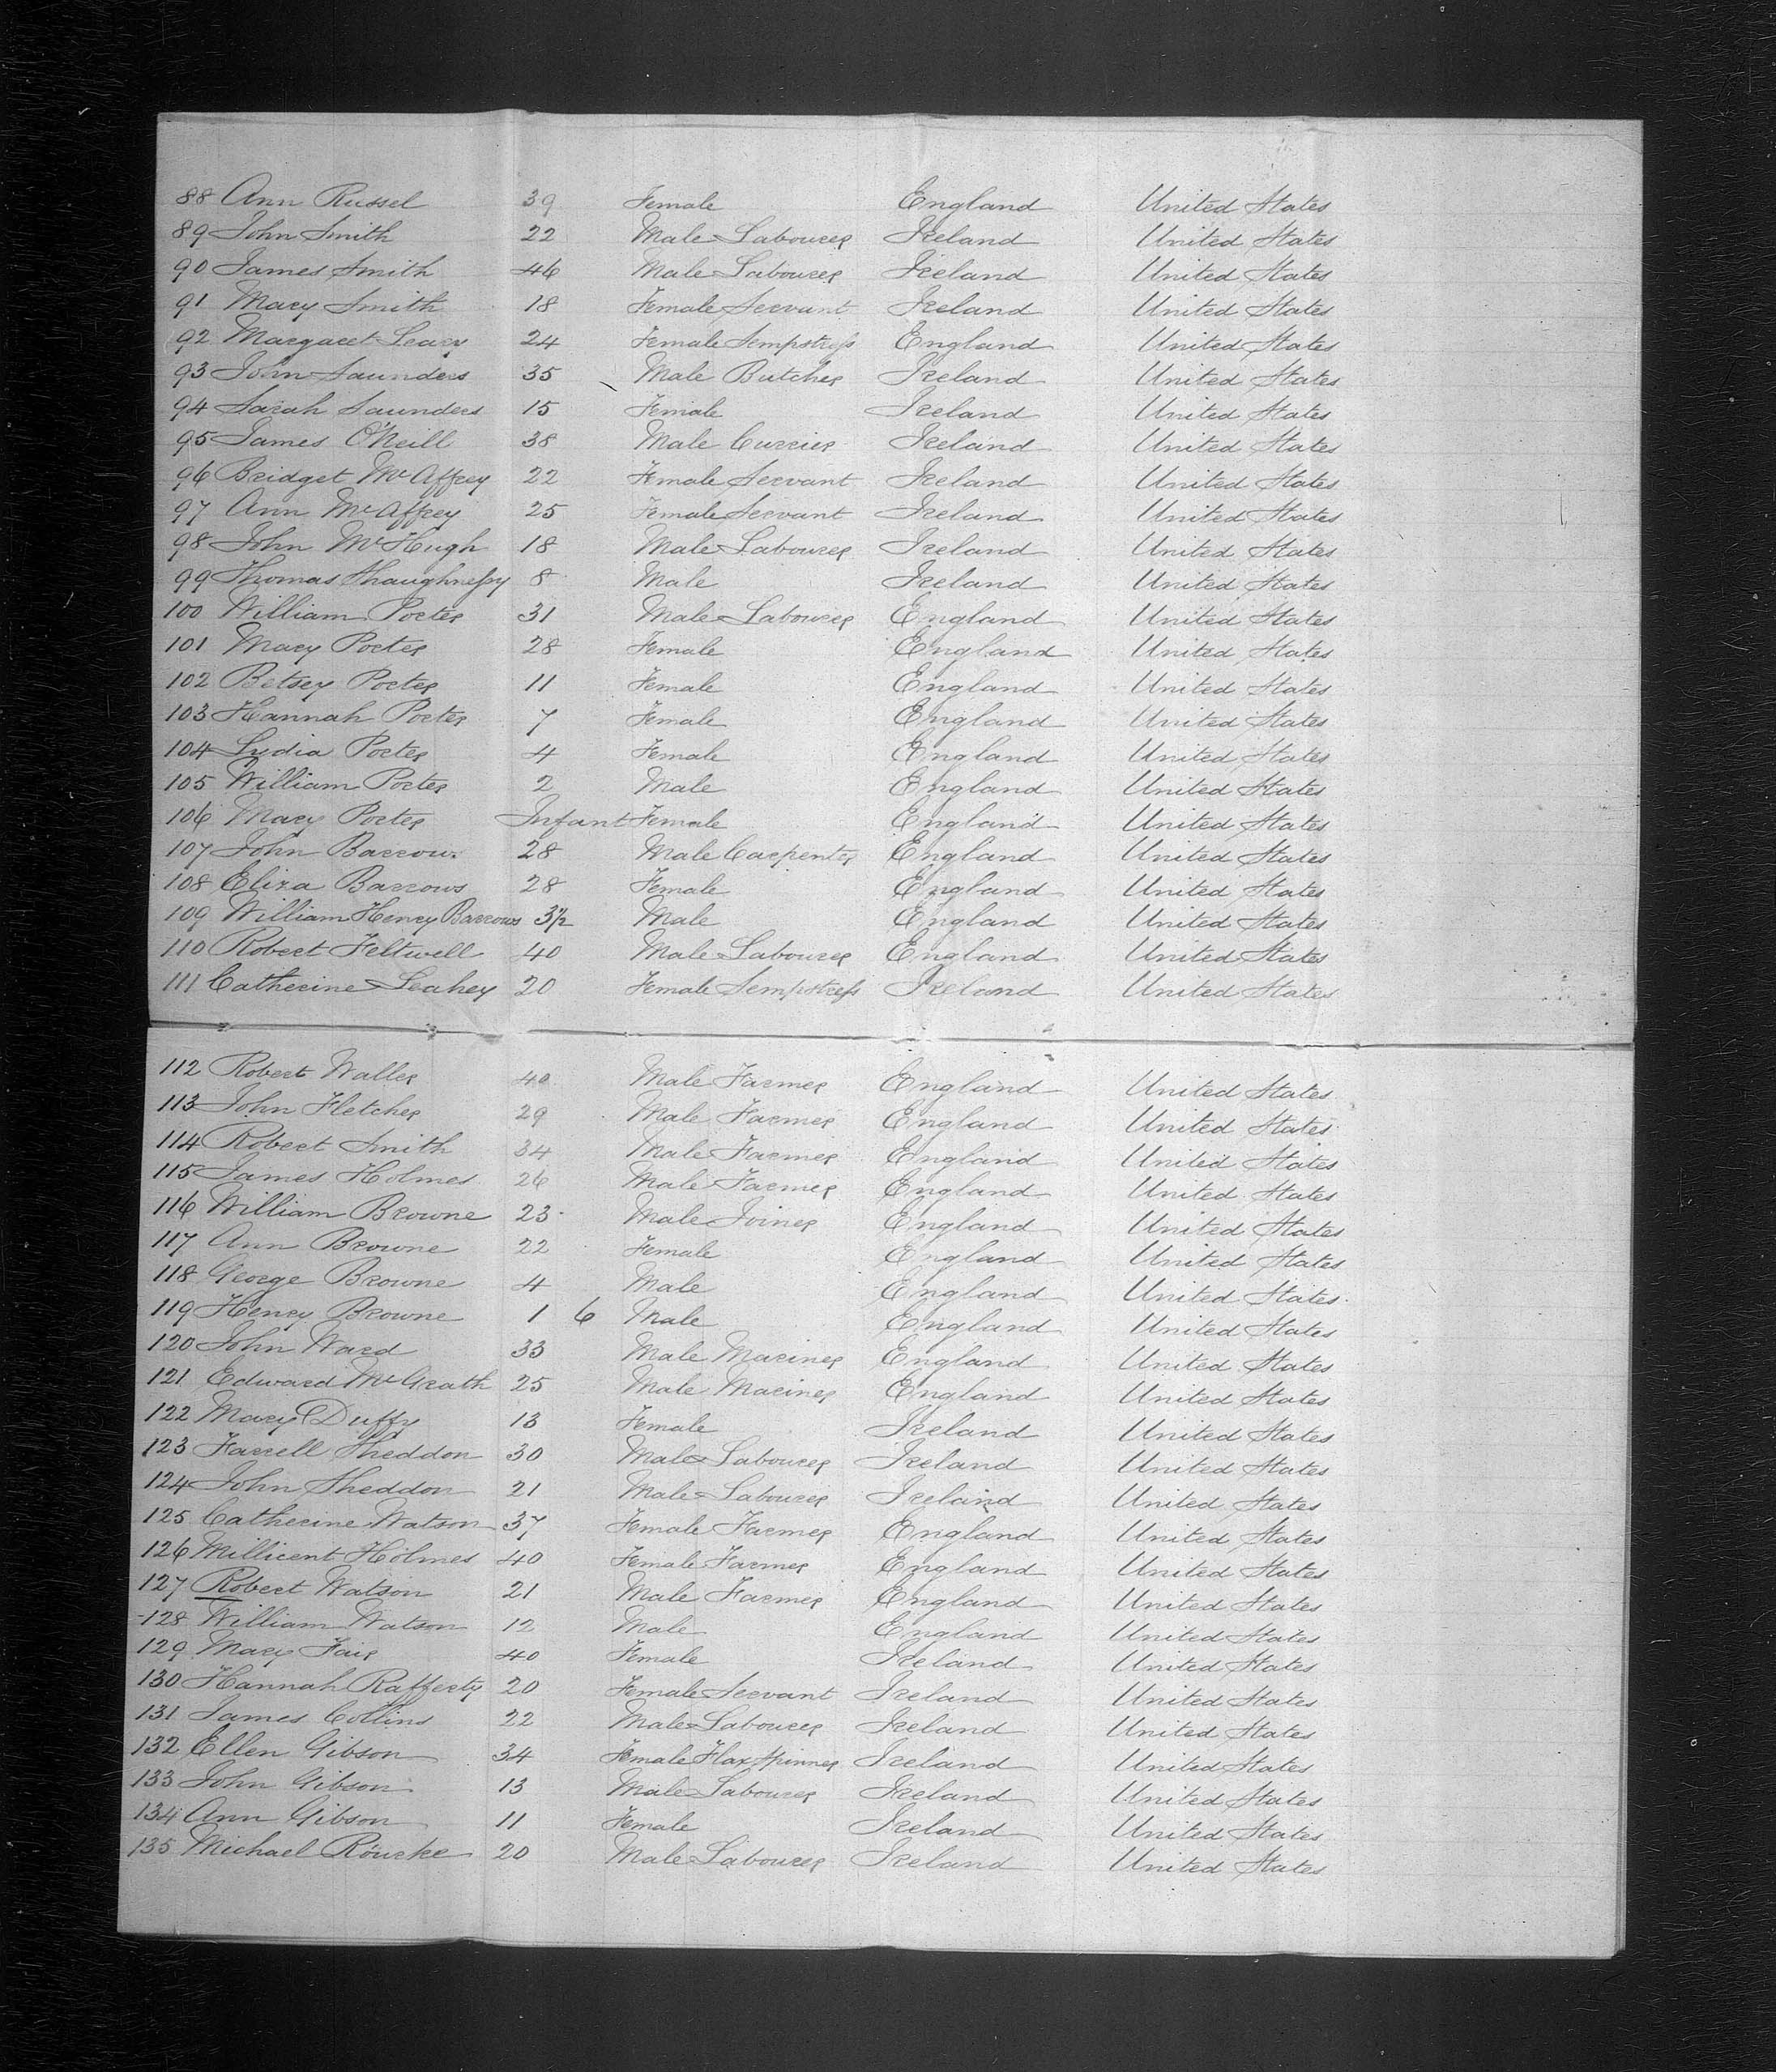 88 Ann Russel 39 Female England United States
89 John Smith 22 Male Labourer Ireland United States
90 James Smith 46 Male Labourer Ireland United States
91 Mary Smith 18 Female Servant Ireland United States
92 Margaret Leary 24 Female Sempstress England United States
93 John Saunders 35 Male Butcher Ireland United States
94 Sarah Saunders 15 Female Ireland United States
95 James O'Neill 38 Male Currier Ireland United States
96 Bridget McAffrey 22 Female Servant Ireland United States
97 Ann McAffrey 25 Female Servant Ireland United States
98 John McHugh 18 Male Labourer Ireland United States
99 Thomas Shaughnessy 8 Male Ireland United States
100 William Porter 31 Male Labourer England United States
101 Mary Porter 28 Female England United States
102 Betsey Porter 11 Female England United States
103 Hannah Porter 7 Female England United States
104 Lydia Porter 4 Female England United States
105 William Porter 2 Male England United States
106 Mary Porter Infant Female England United States
107 John Barrow 28 Male Carpenter England United States
108 Eliza Barrows 28 Female England United States
109 William Henry Barrows 3½ Male England United States
110 Robert Feltwell 40 Male Labourer England United States
111 Catherine Leahey 20 Female Sempstress Ireland United States
112 Robert Waller 40 Male Farmer England United States
113 John Fletcher 29 Male Farmer England United States
114 Robert Smith 34 Male Farmer England United States
115 James Holmes 26 Male Farmer England United States
116 William Browne 23 Male Joiner England United States
117 Ann Browne 22 Female England United States
118 George Browne 4 Male England United States
119 Henry Browne 1 6 Male England United States
120 John Ward 33 Male Mariner England United States
121 Edward McGrath 25 Male Mariner England United States
122 Mary Duffy 13 Female Ireland United States
123 Farrell Sheddon 30 Male Labourer Ireland United States
124 John Sheddon 21 Male Labourer Ireland United States
125 Catherine Watson 37 Female Farmer England United States
126 Millicent Holmes 40 Female Farmer England United States
127 Robert Watson 21 Male Farmer England United States
128 William Watson 12 Male England United States
129 Mary Fair 40 Female Ireland United States
130 Hannah Rafferty 20 Female Servant Ireland United States
131 James Collins 22 Male Labourer Ireland United States
132 Ellen Gibson 34 Female Flax Spinner Ireland United States
133 John Gibson 13 Male Labourer Ireland United States
134 Ann Gibson 11 Female Ireland United States
135 Michael Rourke 20 Male Labourer Ireland United States